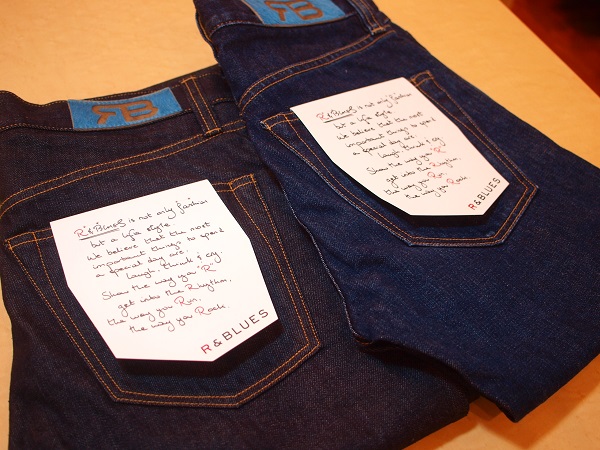 RB
R&Blues is not only fashion
but a life style.
We believe that the most
important things to spend
a special day are.
Laugh, think & cry
Show the way you "R"
get into the Rhythm,
the way you Run,
the way you Rock.
R & BLUES
RB
R&Blues is not only fashion
but a life style.
We believe that the most
important things to spend
a special day are.
Laugh, think & cry
Show the way you "R"
get into the Rhythm,
the way you Run,
the way you Rock
R & BLUES